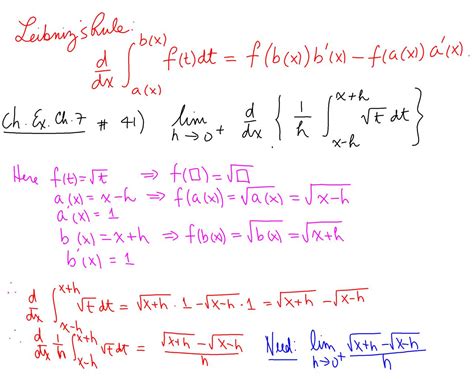 Leibniz's Rule:
d/dx ∫_{a(x)}^{b(x)} f(t)dt = f(b(x)) b'(x) − f(a(x)) a'(x).
Ch. Ex. Ch. 7 # 41) lim_{h→0⁺} d/dx { 1/h ∫_{x-h}^{x+h} √t dt }
Here f(t)=√t ⇒ f(□)=√□
a(x)=x−h ⇒ f(a(x))=√a(x)=√x−h
a'(x)=1
b(x)=x+h ⇒ f(b(x))=√b(x)=√x+h
b'(x)=1
∴ d/dx ∫_{x-h}^{x+h} √t dt = √x+h · 1 − √x−h · 1 = √x+h − √x−h
∴ d/dx 1/h ∫_{x-h}^{x+h} √t dt = (√x+h − √x−h)/h Need: lim_{h→0⁺} (√x+h − √x−h)/h